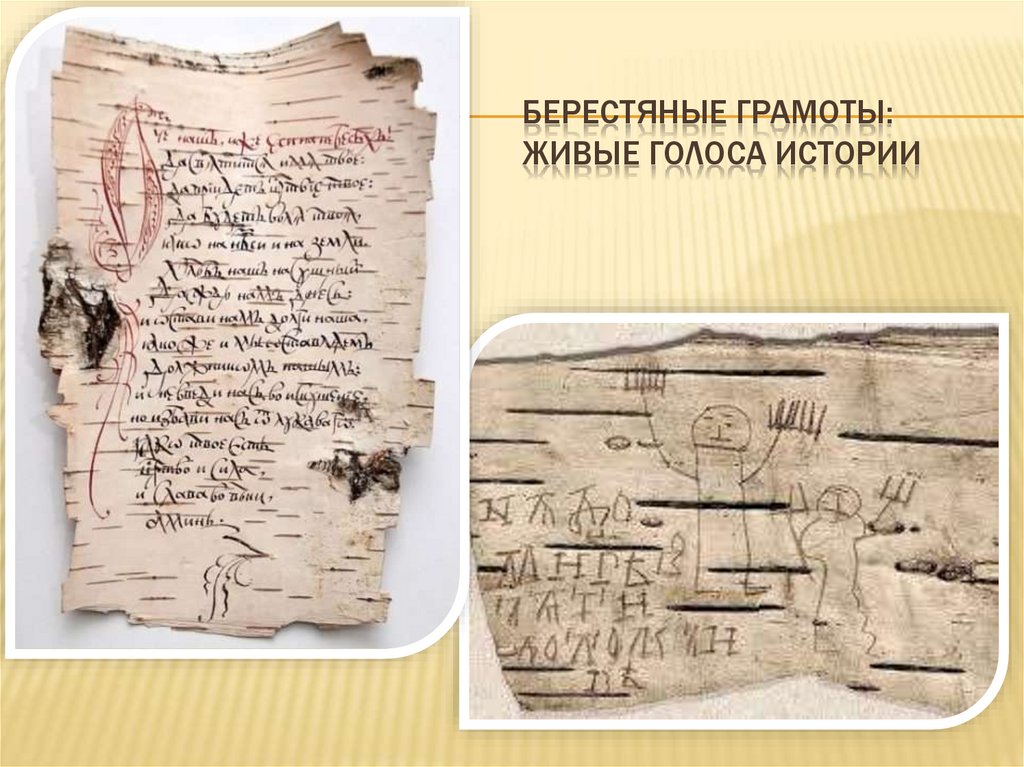 БЕРЕСТЯНЫЕ ГРАМОТЫ:
ЖИВЫЕ ГОЛОСА ИСТОРИИ
Ѿче нашъ, иже еси на небесѣхъ!
Да свѧтитсѧ имѧ твое:
да прїидетъ црт҃вїе твое:
да будетъ волѧ твоѧ,
ꙗкѡ на нб҃си и на земли.
Хлѣбъ нашъ насущный
даждь намъ днесь:
и ѡстави намъ долги наша,
ꙗкоже и мы ѡставлѧемъ
должникѡмъ нашымъ:
и не введи насъ во искушенїе,
но избави насъ ѿ лукаваго
ꙗкѡ твое есть
црт҃во и сила,
и слава во вѣки,
аминь.
НАДО
МИТРѢ